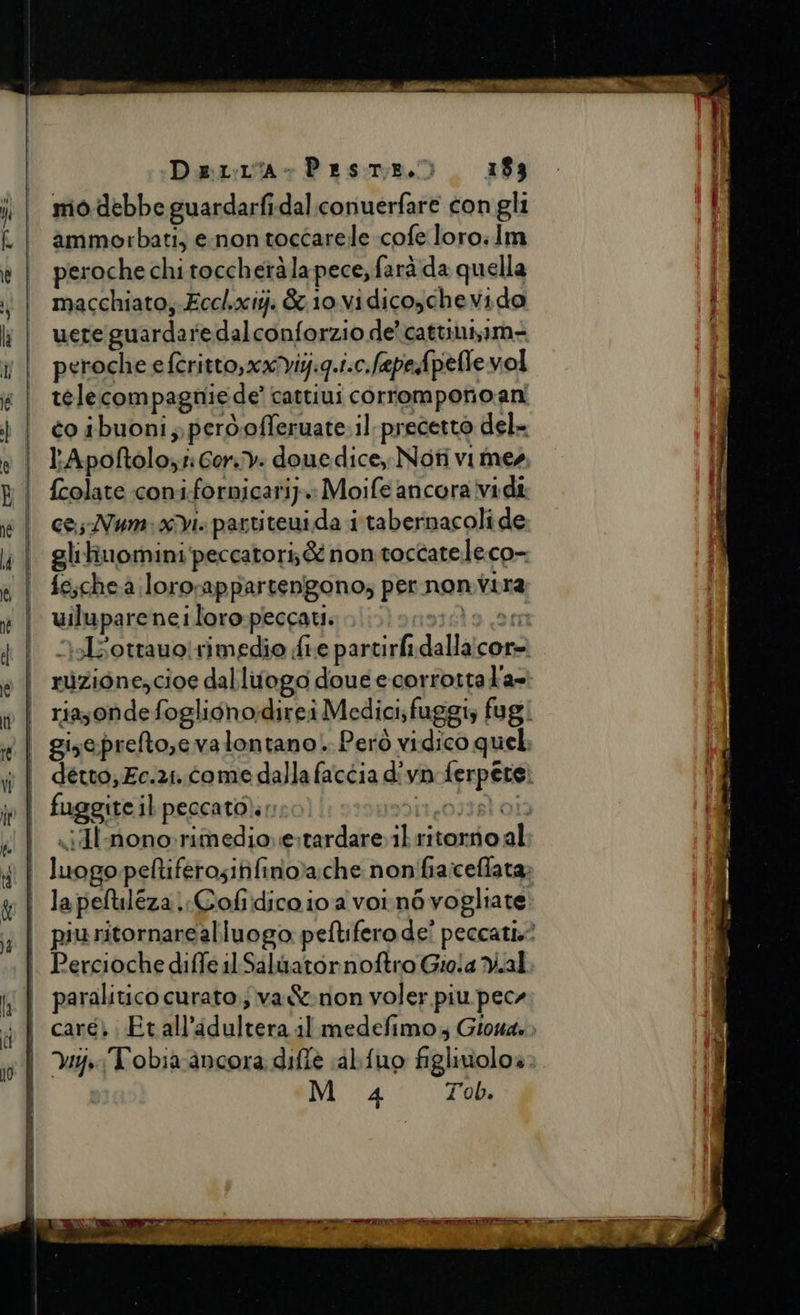 DELLA PESTE. 183
mo debbe guardarſi dal conuerſare con gli
ammorbati, e non toccare le coſe loro. Im
peroche chi toccherà la pece, ſarà da quella
macchiato, Eccl. xiij. & io vi dico, che vi do
uete guardare dal conſorzio de' cattiui, im-
peroche e ſcritto, xxviij. q. i. c. ſæpe, ſpeſſe vol
te le compagnie de' cattiui corrompono an
co i buoni, però oſſeruate il precetto del-
l'Apoſtolo, 1. Cor. v. doue dice, Non vi me-
ſcolate con i fornicarij. Moiſe ancora vi di
ce, Num. xvi. partiteui da i tabernacoli de
gli huomini peccatori, & non toccate le co-
ſe, che a loro appartengono, per non vi ra
uiluparene i loro peccati.
L'ottauo rimedio ſie partirſi dalla cor-
ruzione, cioe dal luogo doue e corrotta l'a-
ria, onde ſogliono dire i Medici, fuggi, fug
gi, e preſto, e va lontano. Però vi dico quel
detto, Ec. 21. come dalla faccia d'vn ſerpēte
fuggite il peccato.
Il nono rimedio e tardare il ritorno al
luogo peſtifero, inſino a che non ſia ceſſata
la peſtilēza. Coſi dico io a voi nō vogliate
piu ritornare al luogo peſtifero de' peccati.
Percioche diſſe il Saluator noſtro Gio. a v. al
paralitico curato, va & non voler piu pec-
care. Et all'adultera il medeſimo, Gioua.
vij. Tobia ancora diſſe al ſuo figliuolo.
M 4 Tob.